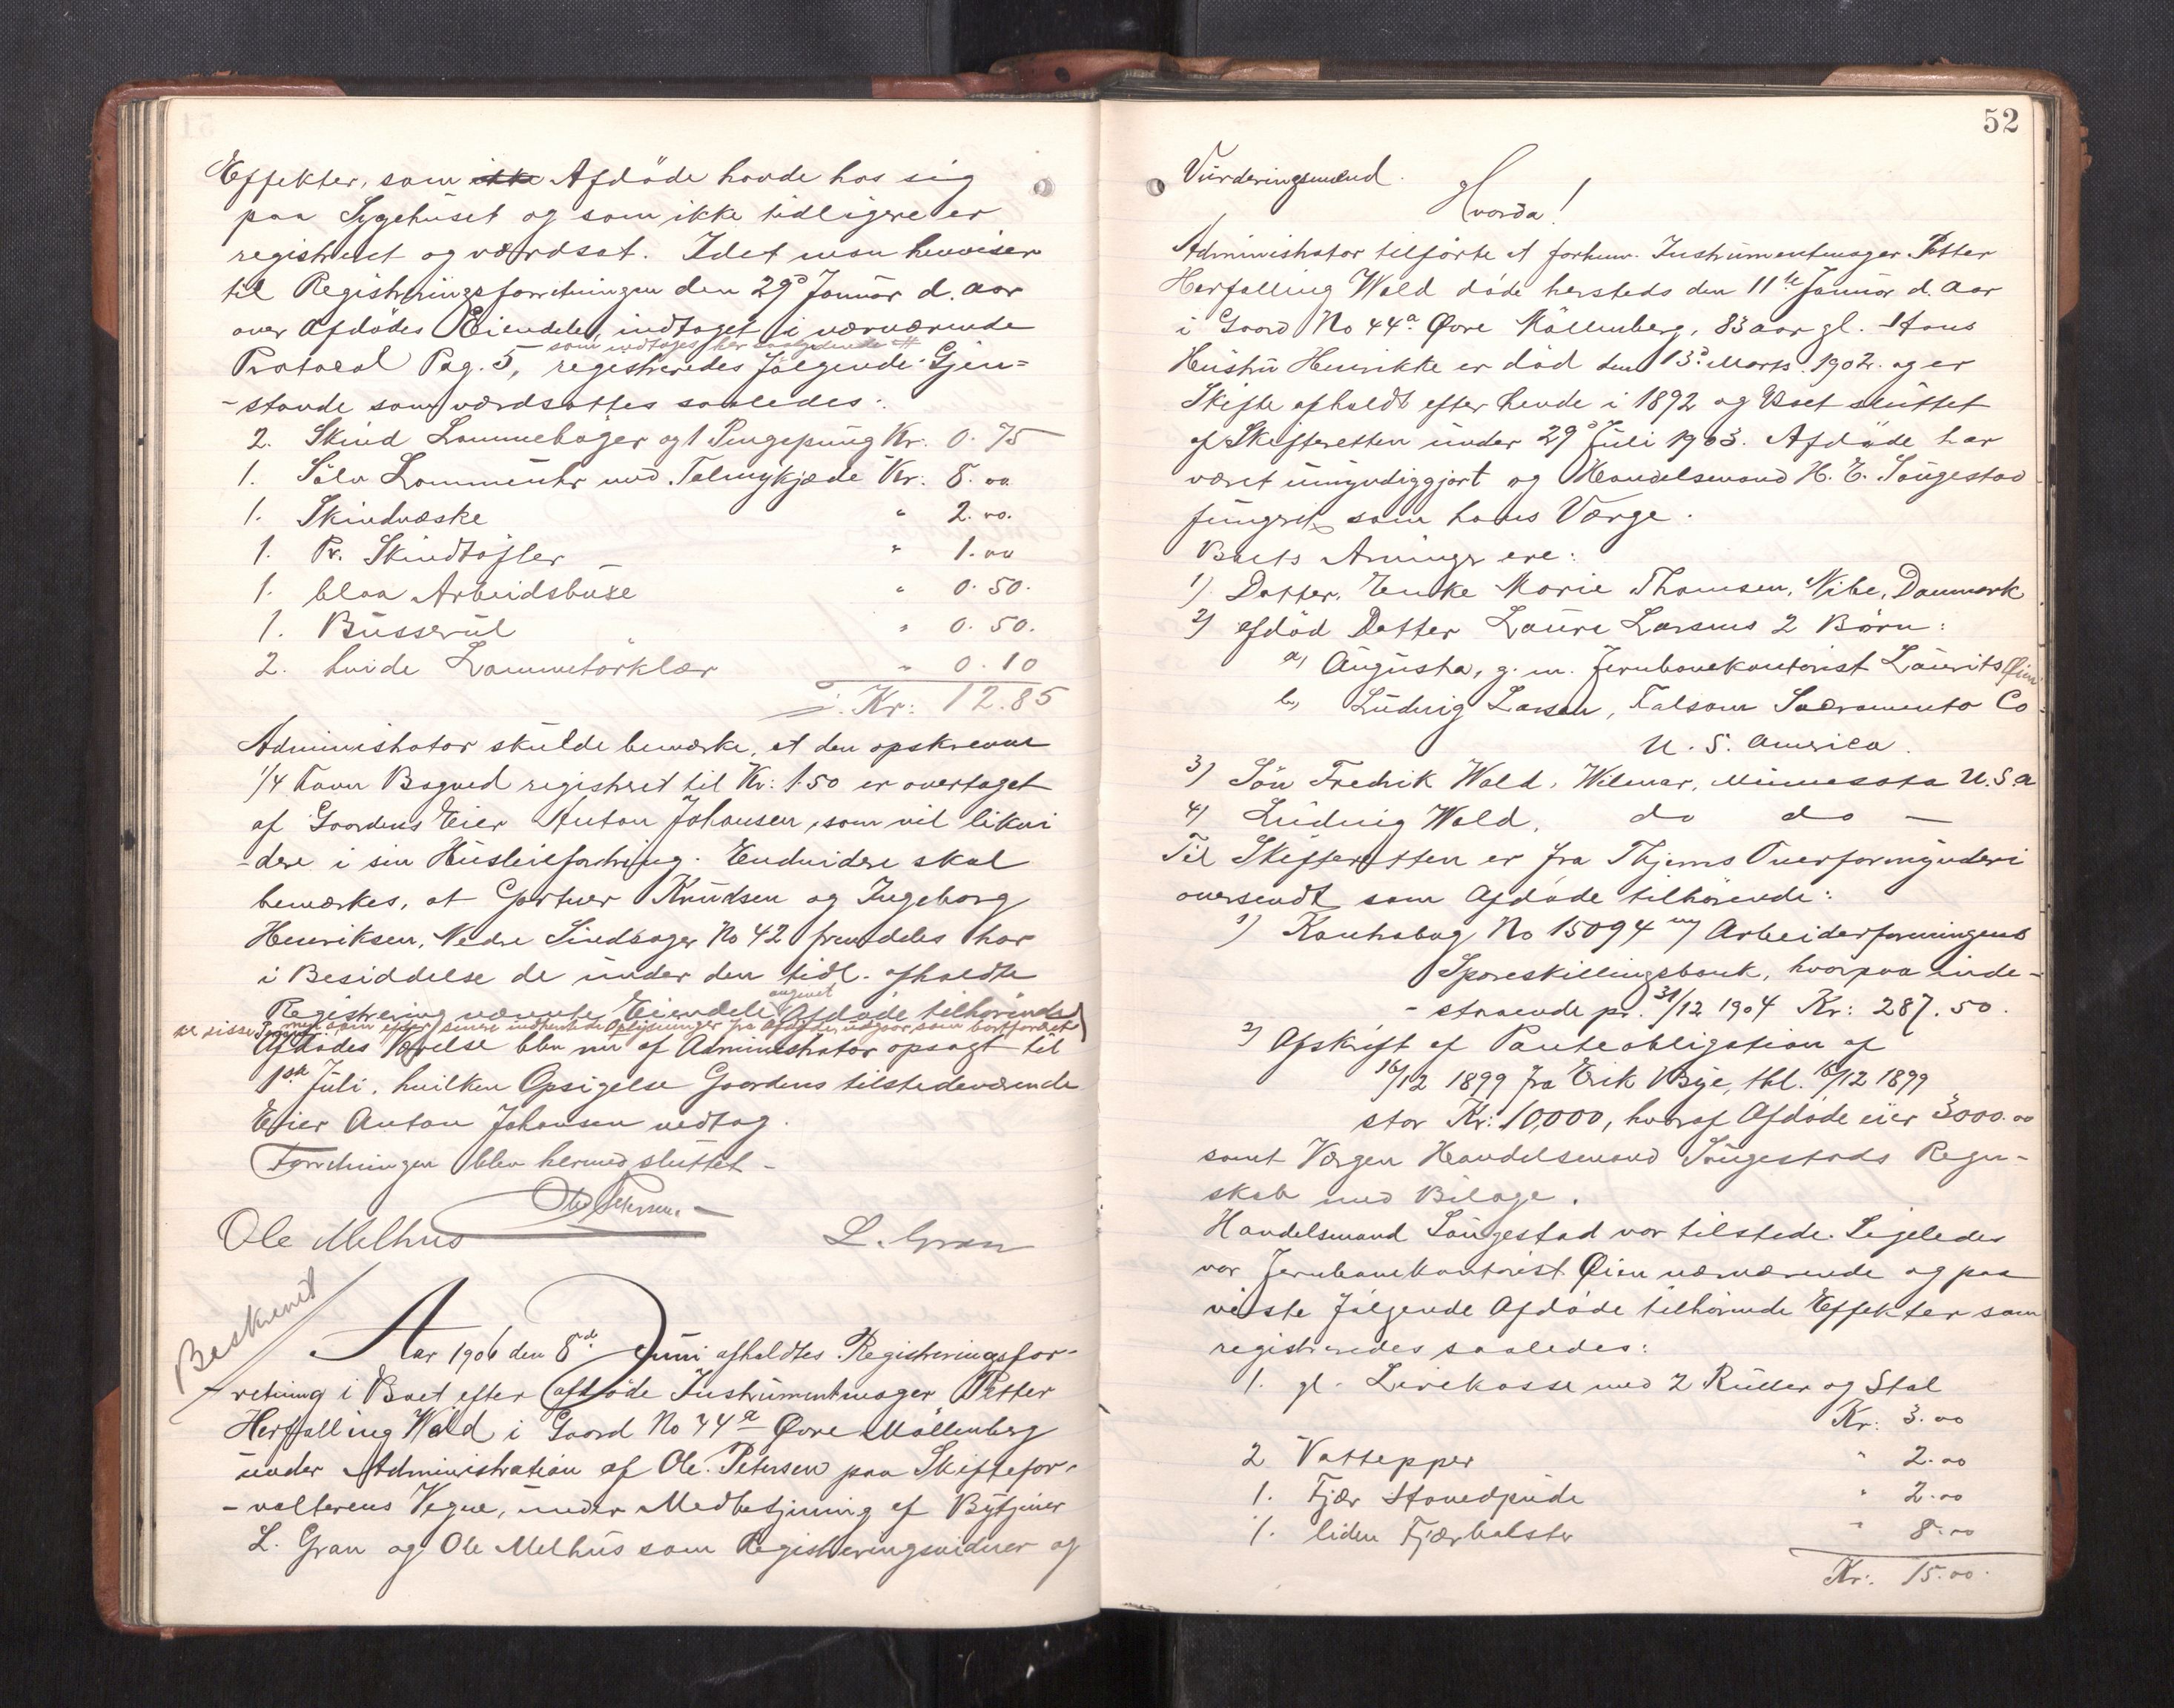 Effekter, som ikke Afdöde havde hos sig
paa Sygehuset og som ikke tidligere er
registreret og værdsat. Idet man henviser
til Registreringsforretningen den 29d Januar d. Aar
over Afdödes Eiendele, indtaget i nærværende
som indtages her
Protocol Pag. 5, registreredes fölgende Gjen=
-stande som værdsattes saaledes:
2. Skind Lommeböger og 1 Pengepung Kr. 0.75
1. Sölv Lommeuhr med Talmykjæde Kr. 8.00
1. Skindvæske " 2.00.
1. Pr. Skindtöfler " 1.00
1. blaa Arbeidsbuxe " 0.50.
1. Busserul " 0.50.
2. hvide Lommetörklær " 0.10
Kr: 12.85
Administrator skulde bemærke, at den opskrevne
1/4 Favn Bagved registreret til Kr: 1.50 er overtaget
af Gaardens Eier Anton Johansen, som vil likvi
-dere i sin Husleiefordring. Endvidere skal
bemærkes, at Gartner Knudsen og Ingeborg
Henriksen, Nedre Singsager No 42 fremdeles har
i Besiddelse de under den tidl. afholdte
angivet
Registrering nævnte Eiendele Afdöde tilhörende
men som efter senere indhentede Oplysninger fra udgaar som bortforæret
Afdödes Værelse blev nu af Administrator opsagt til
1ste Juli, hvilken Opsigelse Gaardens tilstedeværende
Eier Anton Johansen vedtog.
Forretningen blev hermed sluttet -
Ole Petersen
Ole Melhus L. Gran
Beskrevet
Aar 1906 den 8d Juni afholdtes Registreringsfor-
retning i Boet efter afdöde Instrumentmager Petter
Herfalling Wald i Gaard No 44a Övre Möllenberg
under Administration af Ole Petersen paa Skiftefor-
-valterens Vegne, under Medbetjening af Bytjener
L. Gran og Ole Melhus som Registreringsvidner og
52
Vurderingsmænd.
Hvorda!
Administrator tilförte at forhenv. Instrumentmager Petter
Herfalling Wald döde hersteds den 11te Januar d. Aar
i Gaard No 44a Övre Möllenberg, 83 aar gl. Hans
Hustru Henrikke er död den 13d Marts 1902. og er
Skifte afholdt efter hende i 1892 og Boet sluttet
af Skifteretten under 29d Juli 1903. Afdöde har
været umyndiggjort og Handelsmand H. E. Saugestad
fungeret som hans Værge.
Boets Arvinger ere:
1) Datter, Enke Marie Thomsen, Nibe, Danmark
2) afdöd Datter Laura Larsens 2 Börn:
a, Augusta, g. m. Jernbanekontorist Laurits Öien
b, Ludvig Larsen, Falsom Sacramento Co
U. S. America.
3) Sön Fredrik Wald, Wilmar, Minnesota U.S.a
4) Ludvig Wald, do do —
Til Skifteretten er fra Thjems Overformynderi
oversendt som Afdöde tilhörende:
1) Kontrabog No 15094 m/ Arbeiderforeningens
Spareskillingsbank, hvorpaa inde-
-staaende pr. 31/12 1904 Kr: 287.50.
2) Afskrift af Panteobligation af
16/12 1899 fra Erik Bye, thl. 16/12 1899
stor Kr: 10,000, hvoraf Afdöde eier 3000.00
samt Værgen Handelsmand Saugestads Regn-
skab med Bilage.
Handelsmand Saugestad var tilstede. Ligeledes
var Jernbanekontorist Öien nærværende og paa
viste fölgende Afdöde tilhörende Effekter som
registreredes saaledes:
1. gl. Lirekasse med 2 Ruller og Stol
Kr: 3.00
2 Vattepper " 2.00
1. Fjær Hovedpude " 2.00
1. liden Fjærbolster " 8.00
Kr: 15.00.